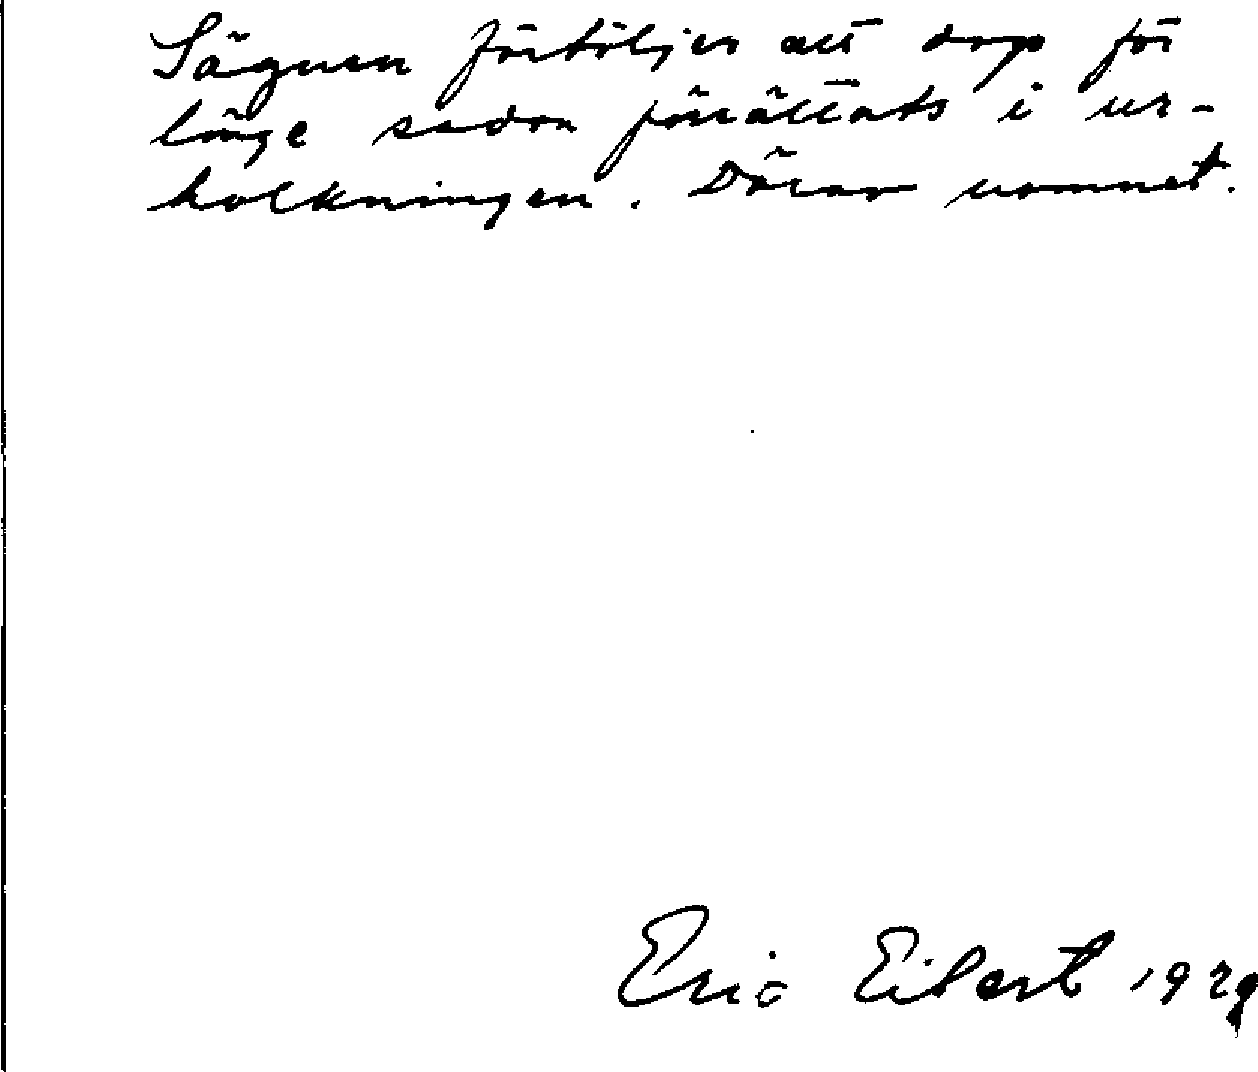 Sägnen förtäljer att dop för
länge sedan förrättats i ur-
holkningen. Därav namnet.
Eric Eilert 1929